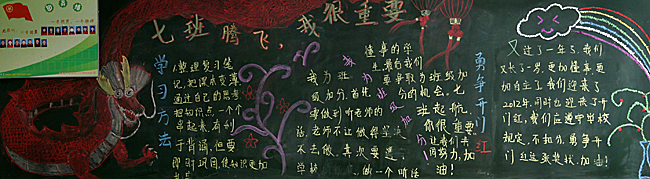 七班腾飞,我很重要
学习方法
整理复习笔
记,把课本变薄
通过自己的思考
把知识点一个个
串起来,有利
于背诵,但要
即时巩固,使知识更加
我为班
级加分,首先
要做到听老师的
话,老师不让做得坚决
不去做,其次要遵
学校
做一个听话
懂事的学
生,最后我们
要争取为班级加
分的机会,七
班起航
你很重要
让我们共
同努力,加
油!
我为班级加分
勇争开门红
又过了一年了,我们
又长了一岁,更加懂事,更
加自立了,我们迎来了
2012年,同时也迎来了开
门红,我们应遵守学校
规定,不扣分,勇争开
门红这张奖状,加油!